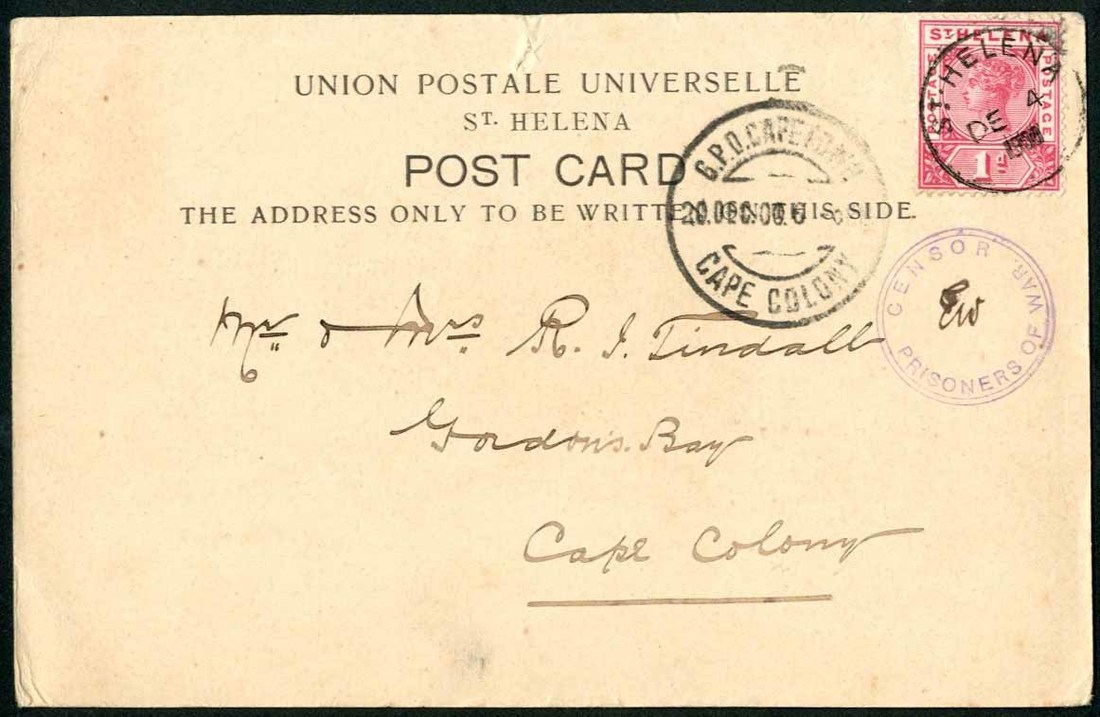 UNION POSTALE UNIVERSELLE
ST. HELENA
POST CARD
THE ADDRESS ONLY TO BE WRITTEN ON THIS SIDE.
ST HELENA
POSTAGE
POSTAGE
1d
ST. HELENA
DE 4
1900
G.P.O. CAPE TOWN.
20.DEC.00.
CAPE COLONY
CENSOR
PRISONERS OF WAR.
Mr & Mrs R. J. Tindall
Gordon's Bay
Cape Colony